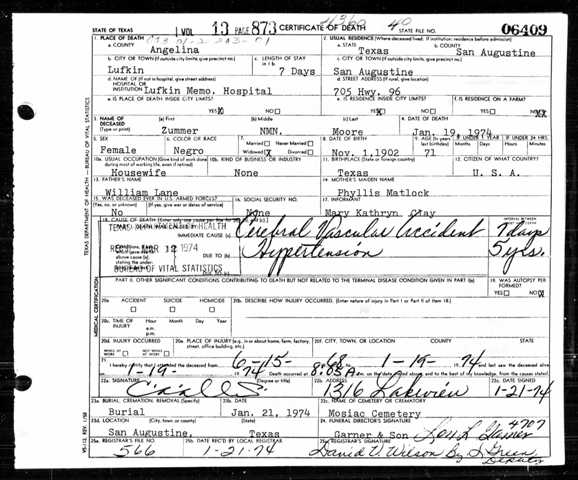 STATE OF TEXAS VOL 13 PAGE 873 CERTIFICATE OF DEATH 40 STATE FILE NO. 06409
1. PLACE OF DEATH
a. COUNTY Angelina
2. USUAL RESIDENCE (Where deceased lived. If institution: residence before admission)
a. STATE Texas b. COUNTY San Augustine
b. CITY OR TOWN (If outside city limits, give precinct no.) Lufkin
c. LENGTH OF STAY in 1 b 7 Days
c. CITY OR TOWN (If outside city limits, give precinct no.) San Augustine
d. NAME OF (If not in hospital, give street address) HOSPITAL OR INSTITUTION Lufkin Memo. Hospital
d. STREET ADDRESS 705 Hwy. 96
e. IS PLACE OF DEATH INSIDE CITY LIMITS? YES X NO
e. IS RESIDENCE INSIDE CITY LIMITS? YES NO
f. IS RESIDENCE ON A FARM? YES NO XX
3. NAME OF DECEASED (Type or print)
(a) First Zummer (b) Middle NMN. (c) Last Moore
4. DATE OF DEATH Jan. 19, 1974
5. SEX Female
6. COLOR OR RACE Negro
7. Married Never Married Widowed X Divorced
8. DATE OF BIRTH Nov. 1,1902
9. AGE 71 IF UNDER 1 YEAR IF UNDER 24 HRS.
10a. USUAL OCCUPATION Housewife
10b. KIND OF BUSINESS OR INDUSTRY None
11. BIRTHPLACE (State or foreign country) Texas
12. CITIZEN OF WHAT COUNTRY? U. S. A.
13. FATHER'S NAME William Lane
14. MOTHER'S MAIDEN NAME Phyllis Matlock
15. WAS DECEASED EVER IN U.S. ARMED FORCES? No
16. SOCIAL SECURITY NO. None
17. INFORMANT Mary Kathryn
18. CAUSE OF DEATH
IMMEDIATE CAUSE (a) Cerebral Vascular Accident 7 days
DUE TO (b) Hypertension 5 yrs.
DUE TO (c)
MAR 12 1974
BUREAU OF VITAL STATISTICS
PART II. OTHER SIGNIFICANT CONDITIONS CONTRIBUTING TO DEATH BUT NOT RELATED TO THE TERMINAL DISEASE CONDITION GIVEN IN PART I(a)
19. WAS AUTOPSY PERFORMED? YES NO X
20a. ACCIDENT SUICIDE HOMICIDE
20b. DESCRIBE HOW INJURY OCCURRED. (Enter nature of injury in Part I or Part II of item 18.)
20c. TIME OF INJURY Hour Month Day Year a.m. p.m.
20d. INJURY OCCURRED
20e. PLACE OF INJURY (e.g., in or about home, farm, factory, street, office building, etc.)
20f. CITY, TOWN, OR LOCATION COUNTY STATE
21. I hereby certify that I attended the deceased from 6-15- 68 1-19- 74
1-19 74 Death occurred at 8:05 A
22a. SIGNATURE (Degree or title)
22b. ADDRESS 1316 Lakeview
22c. DATE SIGNED 1-21-74
23a. BURIAL, CREMATION, REMOVAL (Specify) Burial
23b. DATE Jan. 21, 1974
23c. NAME OF CEMETERY OR CREMATORY Mosiac Cemetery
23d. LOCATION (City, town, or county) (State) San Augustine, Texas
24. FUNERAL DIRECTOR'S SIGNATURE Garner & Son 4707
25a. REGISTRAR'S FILE NO. 566
25b. DATE REC'D BY LOCAL REGISTRAR 1-21-74
25c. REGISTRAR'S SIGNATURE David V. Wilson By Green Deputy
TEXAS DEPARTMENT OF HEALTH — BUREAU OF VITAL STATISTICS
MEDICAL CERTIFICATION